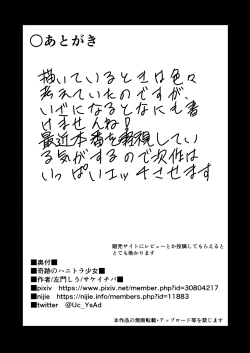 ○あとがき
描いているときは色々
考えていたのですが、
いざになるとなにも書
けませんね?
最近本番を軽視してい
る気がするので次作は
いっぱいエッチさせます
販売サイトにレビューとか投稿してもらえると
とても助かります
■奥付■
■奇跡のハニトラ少女■
■作者/左門しう/サケイチバ■
■pixiv https://www.pixiv.net/member.php?id=30804217
■nijie https://nijie.info/members.php?id=11883
■twitter @Uc_YsAd
本作品の無断転載・アップロード等を禁じます